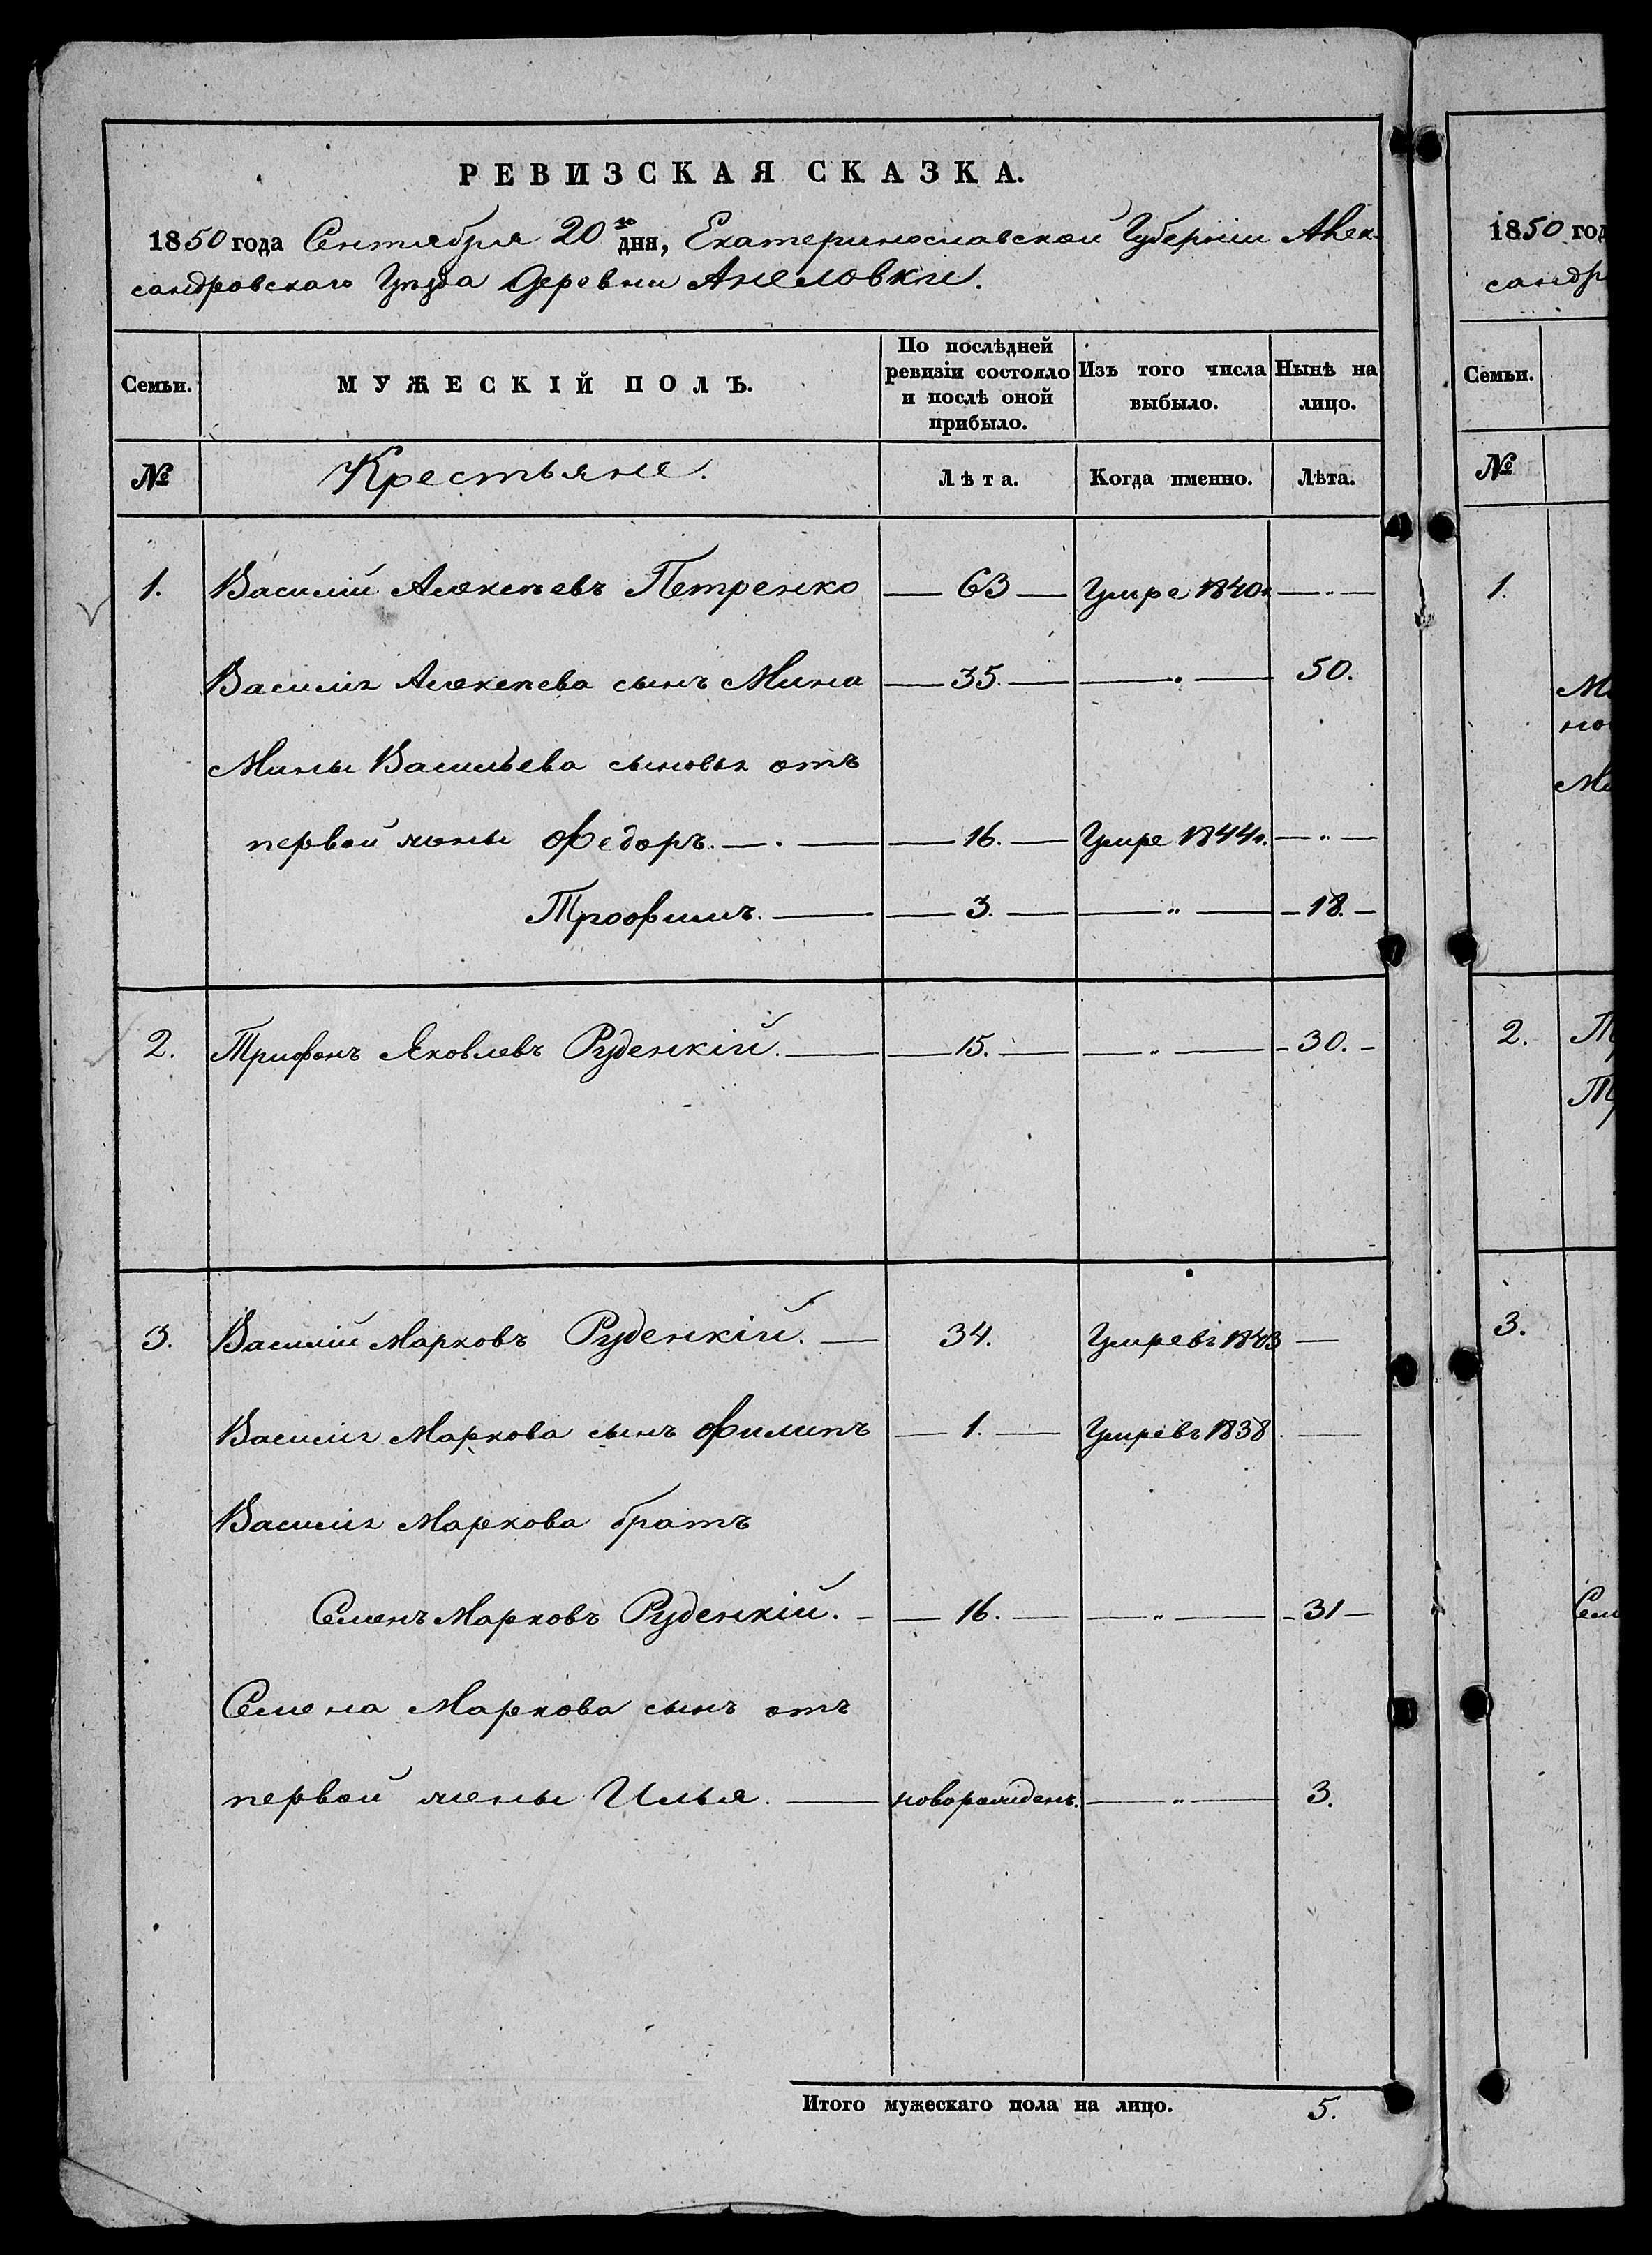 РЕВИЗСКАЯ СКАЗКА.
1850 года Сентября 20го дня, Екатеринославской Губернiи Алек-
сандровскаго Уѣзда Деревни Анеловки.
Семьи. МУЖЕСКІЙ ПОЛЪ. По послѣдней ревизіи состояло и послѣ оной прибыло. Изъ того числа выбыло. Нынѣ на лицо.
№ Крестьяне. Лѣта. Когда именно. Лѣта.
1. Василій Алексѣевъ Петренко — 63 — Умре 1840г. — „ —
Василія Алексѣева сынъ Мина — 35. — — „ — 50.
Мины Васильева сыновья отъ
первой жены Федоръ. — . — — 16. — Умре 1844г. — „ —
Трофимъ. — — 3. — — „ — — 18. —
2. Трифонъ Яковлевъ Руденкій. — — 15. — — „ — — 30. —
3. Василій Марковъ Руденкій. — 34. Умре въ 1843 —
Василія Маркова сынъ Филипъ — 1. — Умре въ 1838 —
Василія Маркова братъ
Семенъ Марковъ Руденкій. — — 16. — — „ — — 31 —
Семена Маркова сынъ отъ
первой жены Илья. — новорожденъ. — „ — 3.
Итого мужескаго пола на лицо. 5.
1850 год
сандр
Семьи.
№
1.
Ми
но
Ми
2. Тр
Тр
3.
Сем